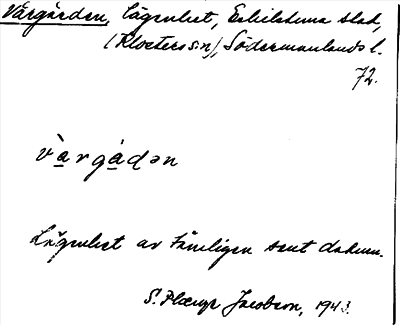 Vårgården, Lägenhet, Eskilstuna stad,
(Klosters sn), Södermanlands l.
72.
vàrgàdən
Lägenhet av tämligen sent datum.
S. Pleurge Jacobson, 1943.